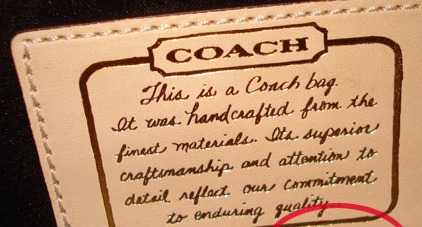 COACH
This is a Coach bag.
It was handcrafted from the
finest materials. Its superior
craftsmanship and attention to
detail reflect our commitment
to enduring quality.